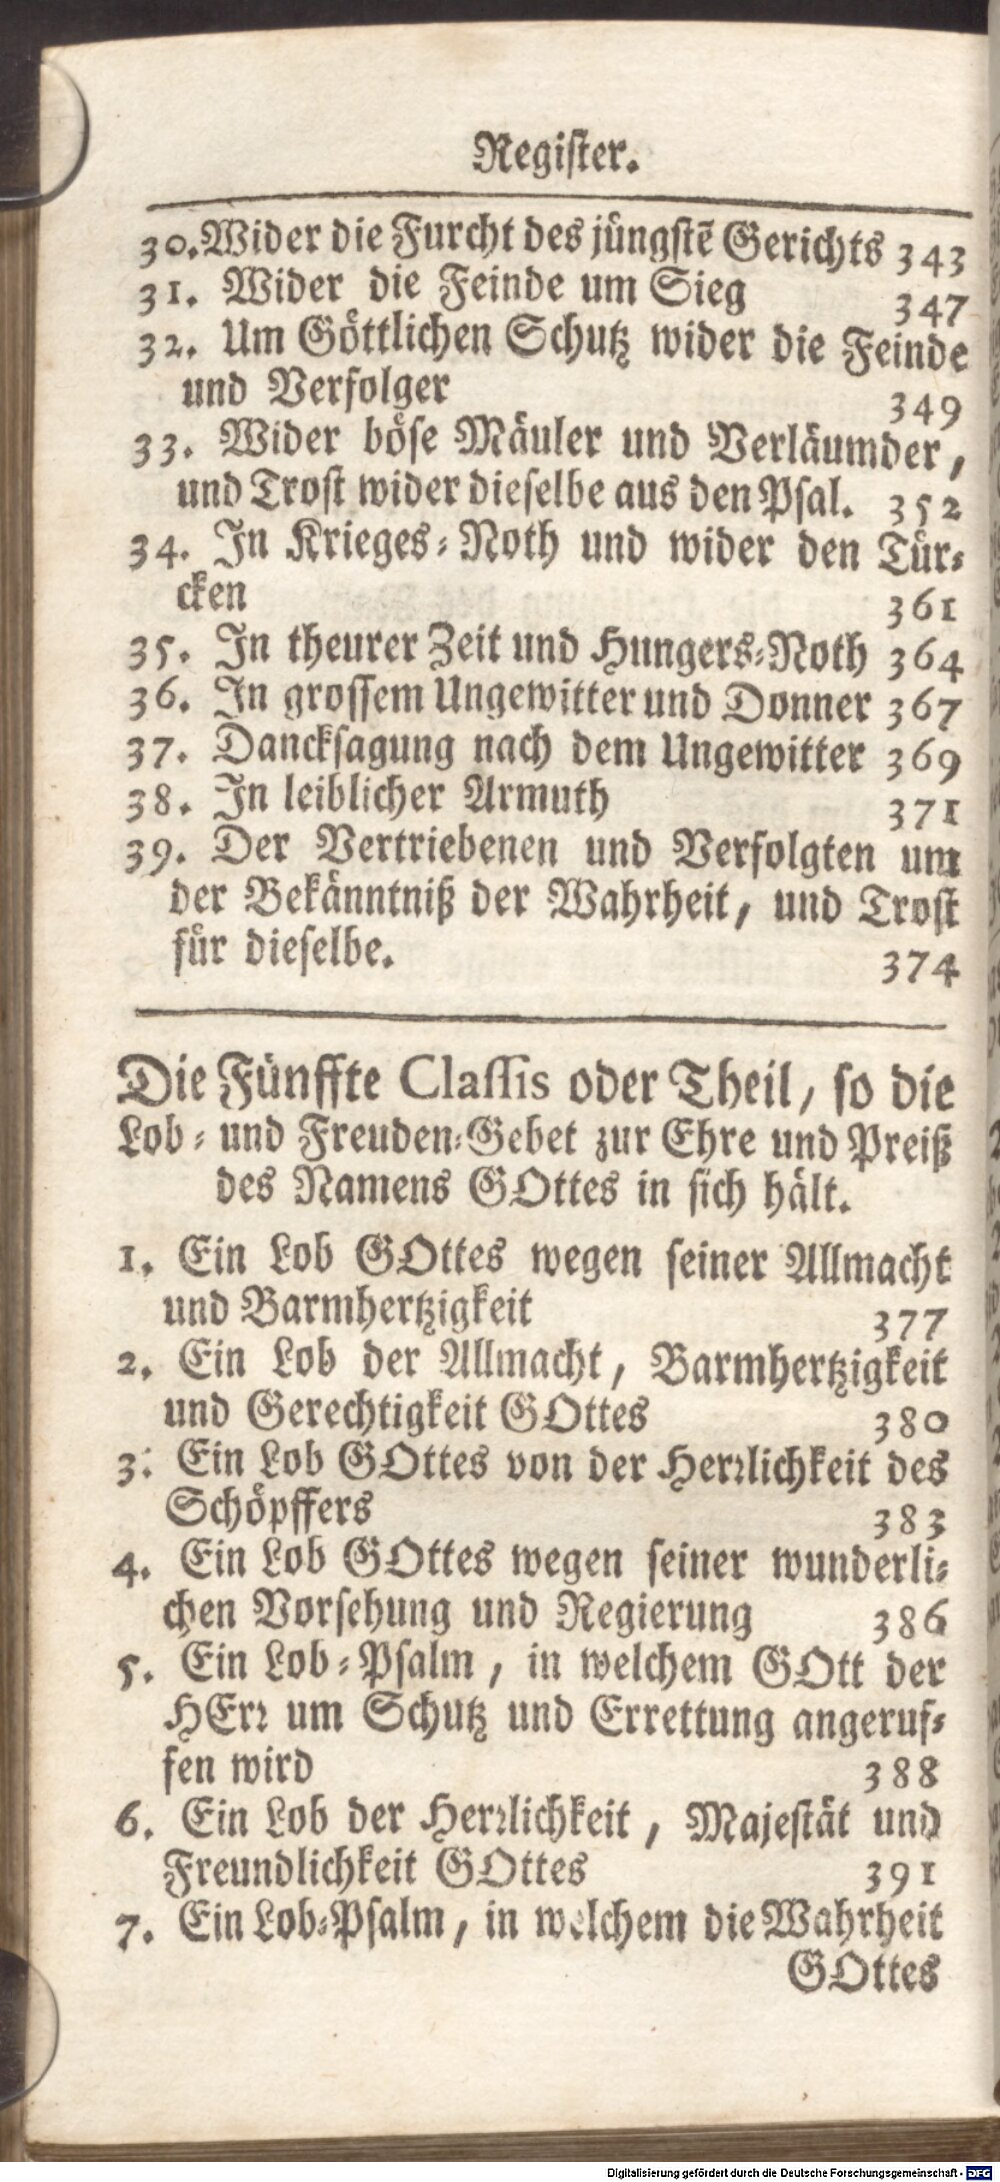 Regiſter.
30. Wider die Furcht des jüngſtē Gerichts 343
31. Wider die Feinde um Sieg 347
32. Um Göttlichen Schutz wider die Feinde
und Verfolger 349
33. Wider böſe Mäuler und Verläumder,
und Troſt wider dieſelbe aus den Pſal. 352
34. In Krieges-Noth und wider den Tür-
cken 361
35. In theurer Zeit und Hungers-Noth 364
36. In groſſem Ungewitter und Donner 367
37. Danckſagung nach dem Ungewitter 369
38. In leiblicher Armuth 371
39. Der Vertriebenen und Verfolgten um
der Bekänntniß der Wahrheit, und Troſt
für dieſelbe. 374
Die Fünffte Claſſis oder Theil, ſo die
Lob- und Freuden-Gebet zur Ehre und Preiß
des Namens GOttes in ſich hält.
1. Ein Lob GOttes wegen ſeiner Allmacht
und Barmhertzigkeit 377
2. Ein Lob der Allmacht, Barmhertzigkeit
und Gerechtigkeit GOttes 380
3. Ein Lob GOttes von der Herꝛlichkeit des
Schöpffers 383
4. Ein Lob GOttes wegen ſeiner wunderli-
chen Vorſehung und Regierung 386
5. Ein Lob-Pſalm, in welchem GOtt der
HErꝛ um Schutz und Errettung angeruf-
fen wird 388
6. Ein Lob der Herꝛlichkeit, Majeſtät und
Freundlichkeit GOttes 391
7. Ein Lob-Pſalm, in welchem die Wahrheit
GOttes
Digitalisierung gefördert durch die Deutsche Forschungsgemeinschaft - DFG